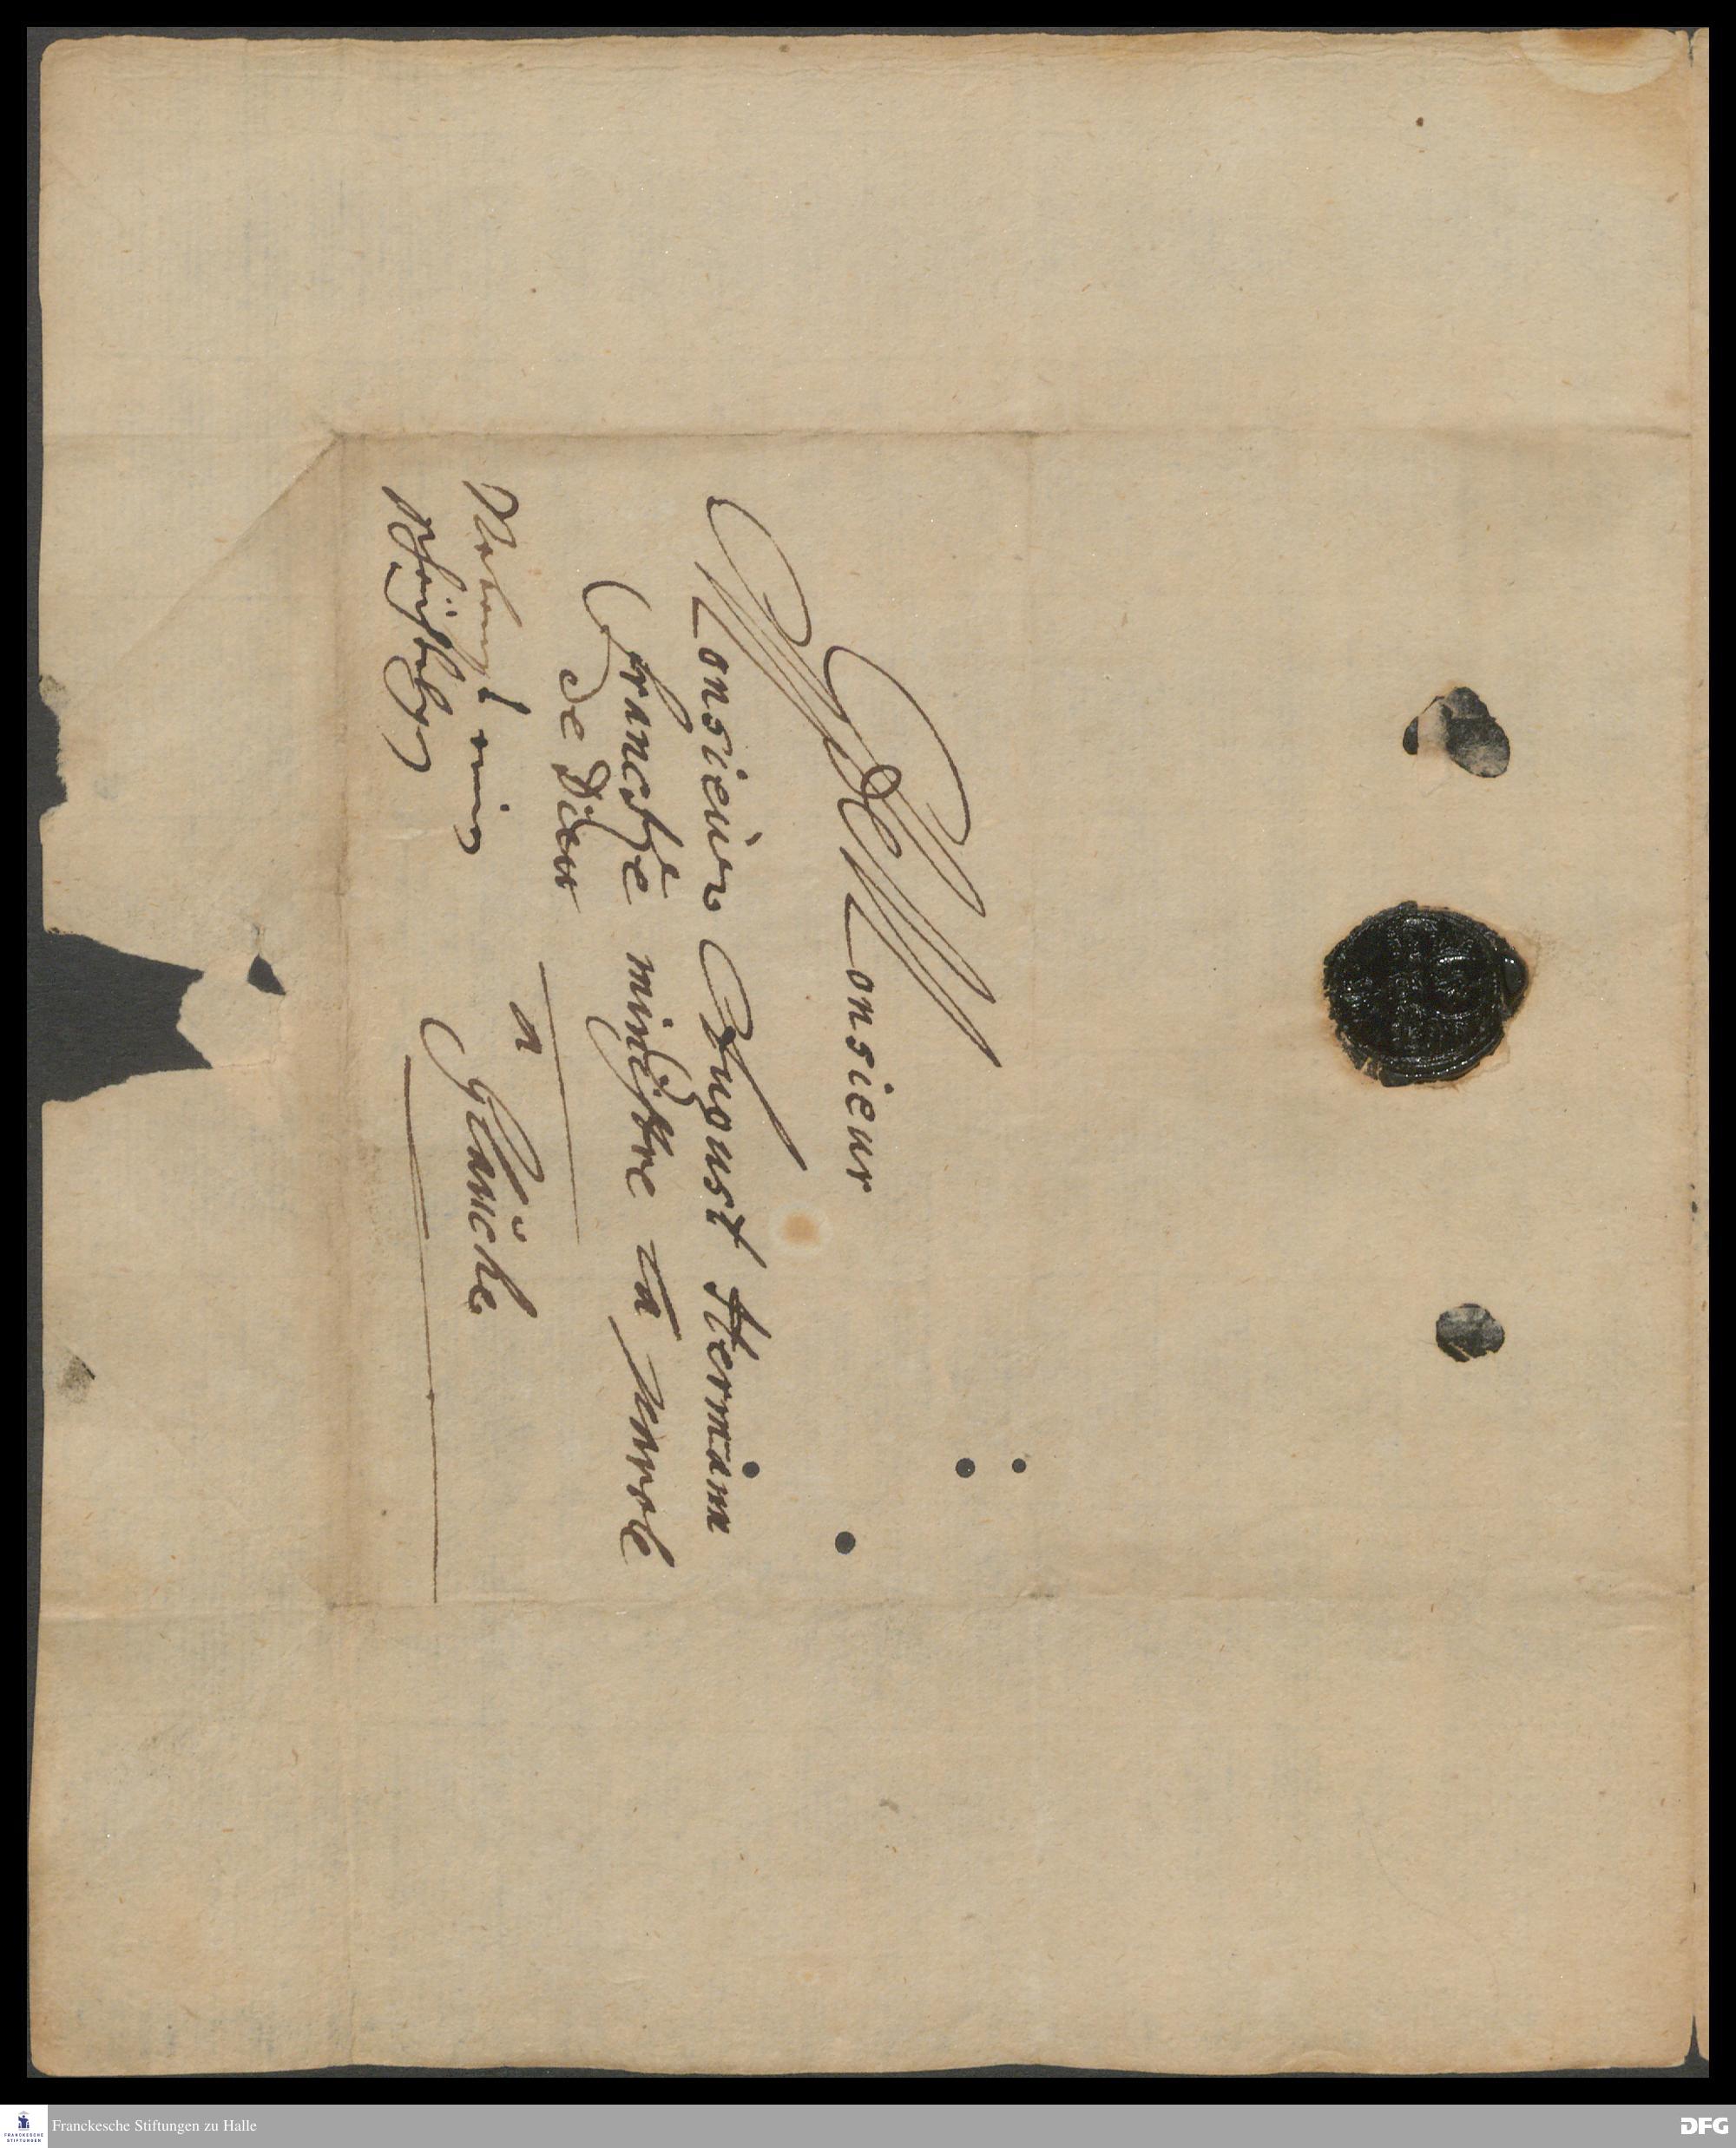 A Monsieur
Monsieur August Hermann
Francke ministre la parole
de Dieu
a
Glaucha
Nebenst ein
Franckesche Stiftungen zu Halle
FRANCKESCHE
STIFTUNGEN
DFG